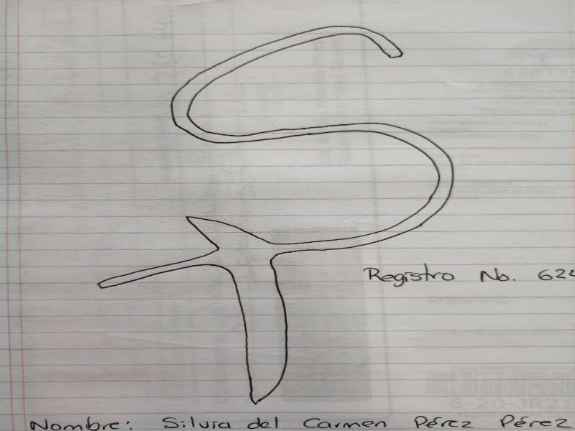 Registro No. 624
Nombre: Silvia del Carmen Pérez Pérez